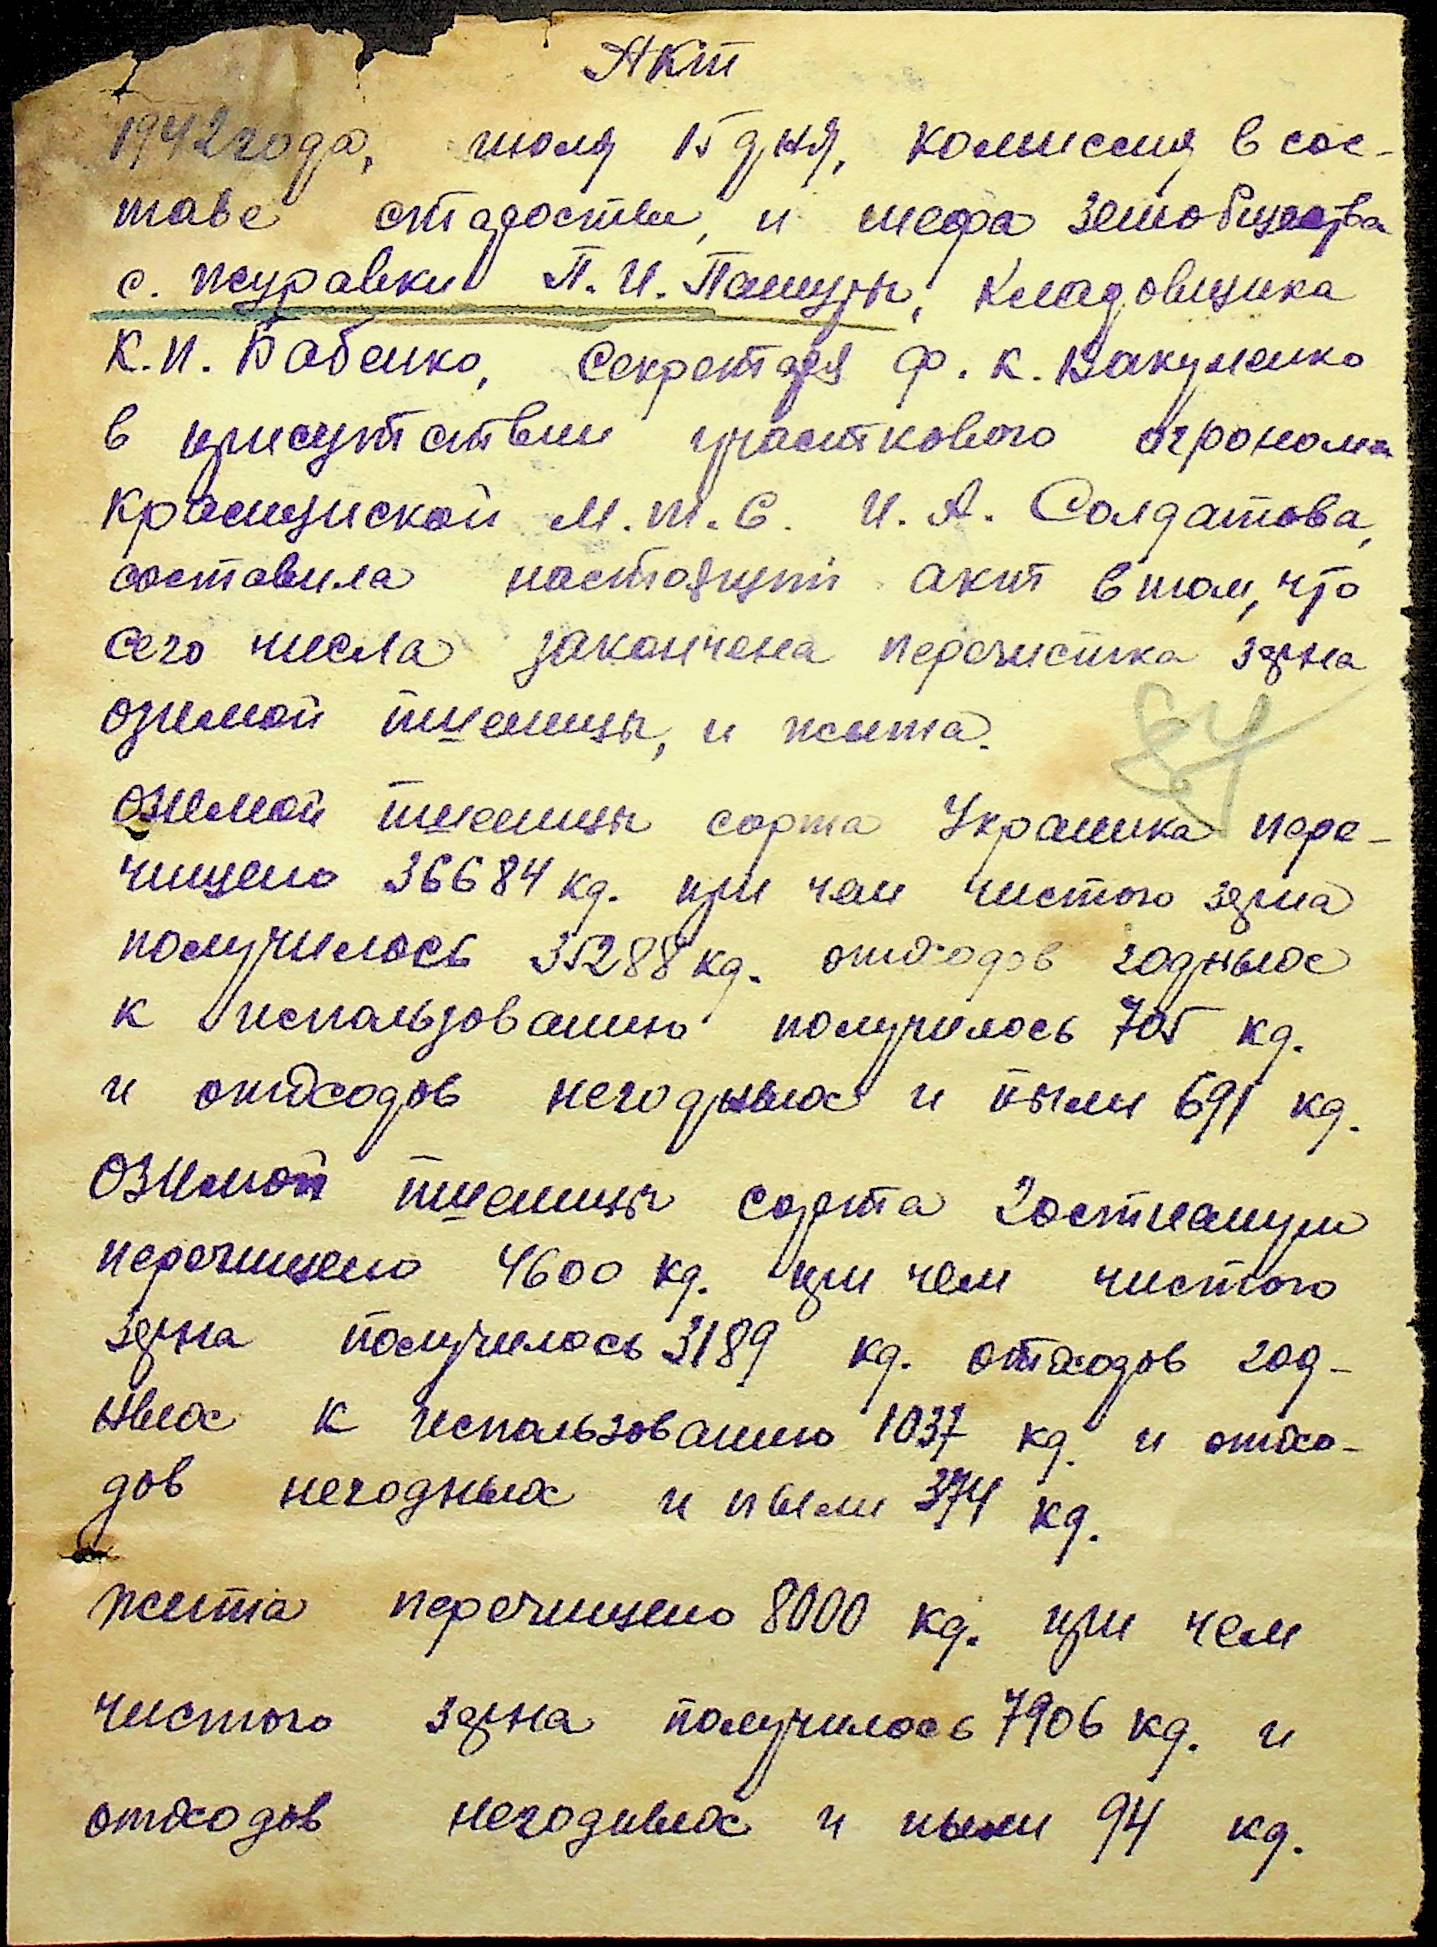 Акт
1942 года, июля 15 дня, комиссия в сос-
таве старосты, и шефа земобщества
с. Журавки П. И. Пащуры, кладовщика
К. П. Бабенко, секретаря Ф. К. Вакуленко
в присутствии участкового агронома
М. т. С. И. А. Солдатова,
составила настоящий акт в том, что
сего числа закончена перечистка зерна
озимой пшеницы, и жита.
84
Озимой пшеницы сорта Украинка пере-
чищено 36684 кг. при чем чистого зерна
получилось 35288 кг. отходов годных
к использованию получилось 705 кг.
и отходов негодных и пыли 691 кг.
Озимой пшеницы сорта Гостианум
перечищено 4600 кг. при чем чистого
зерна получилось 3189 кг. отходов год-
ных к использованию 1037 кг. и отхо-
дов негодных и пыли 374 кг.
Жита перечищено 8000 кг. при чем
чистого зерна получилось 7906 кг. и
отходов негодных и пыли 94 кг.